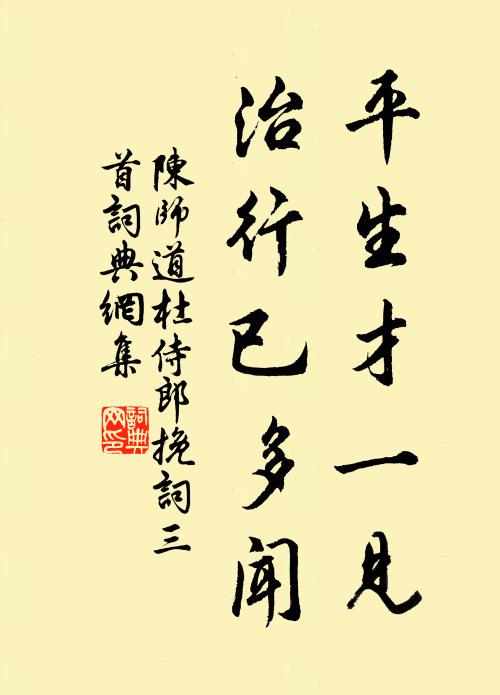 平生才一見
治行已多聞
陳師道杜侍郎挽詞三
首詞典網集
詞典网印